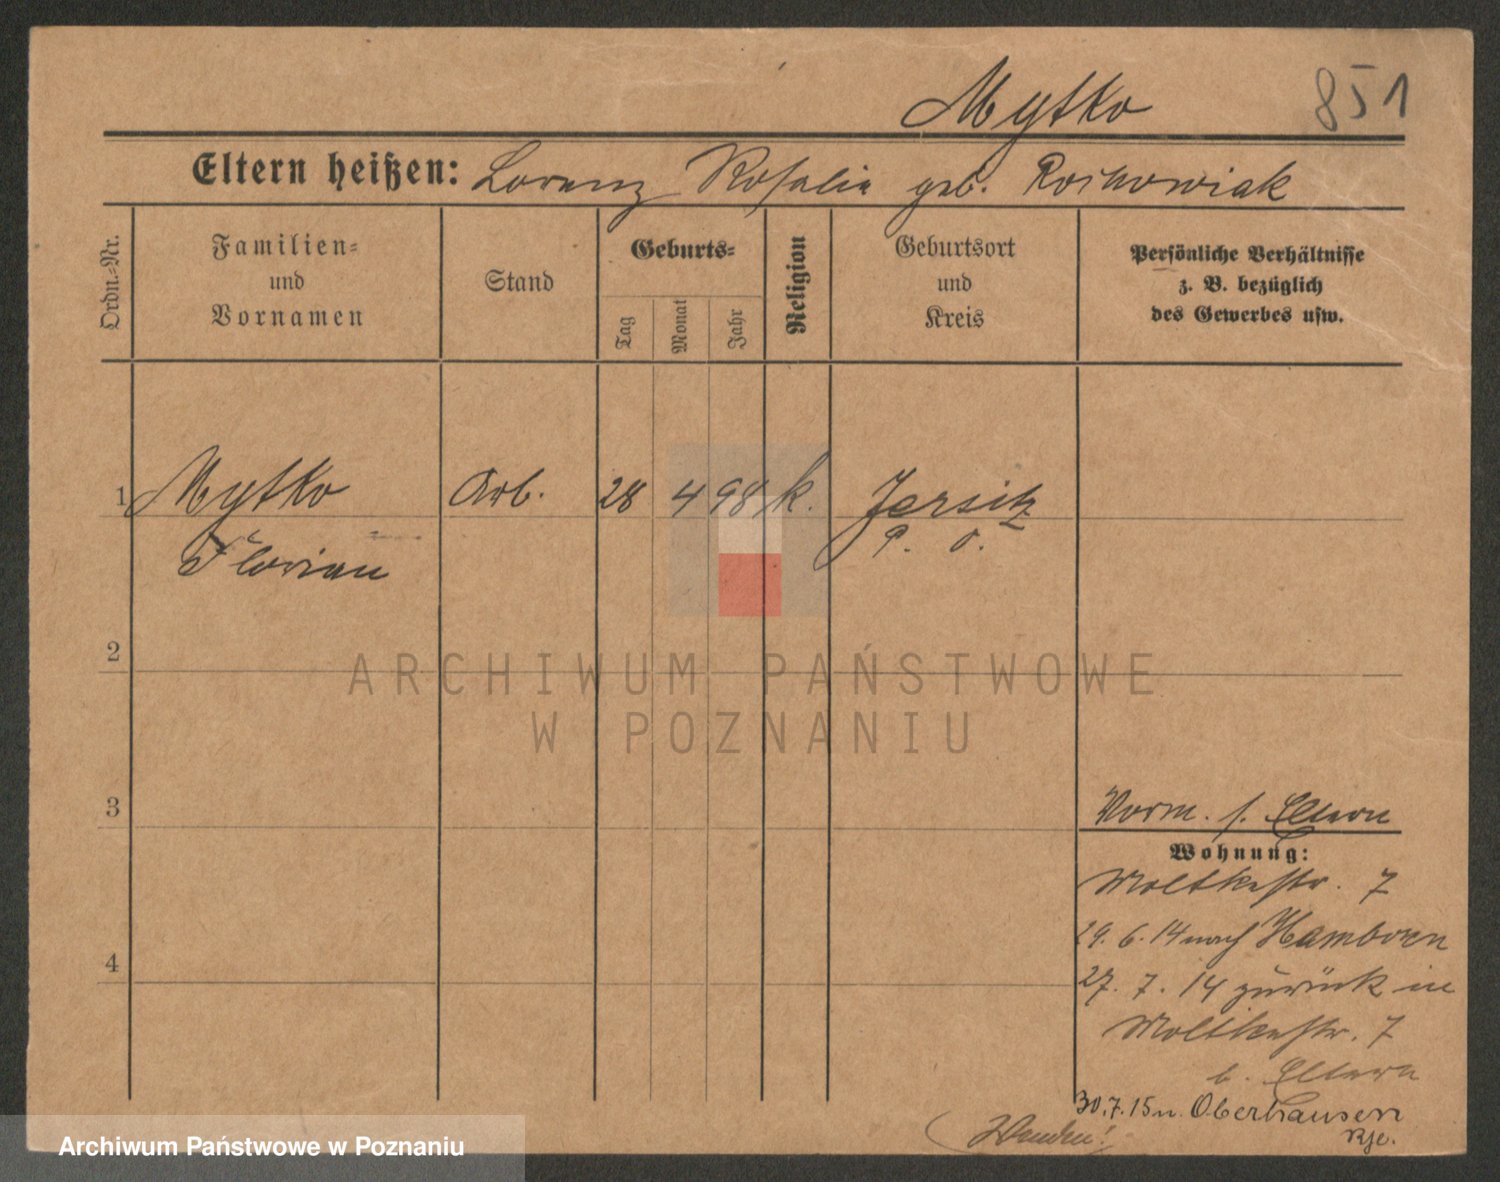 Mytko
851
Eltern heißen: Lorenz Rosalie geb. Roinowiak
Ordn.-Nr.
Familien-
und
Vornamen
Stand
Geburts-
Tag
Monat
Jahr
Religion
Geburtsort
und
Kreis
Persönliche Verhältnisse
z. B. bezüglich
des Gewerbes usw.
1 Mytko Arb. 28 4 98 k. Jersitz
Florian P. O.
2
ARCHIWUM PAŃSTWOWE
W POZNANIU
3
4
Vorm. s. Eltern
Wohnung:
Moltkestr. 7
29. 6. 14 nach Hamborn
27. 7. 14 zurück in
Moltkestr. 7
b. Eltern
30. 7. 15 n. Oberhausen
Rje.
(Wenden!)
Archiwum Państwowe w Poznaniu